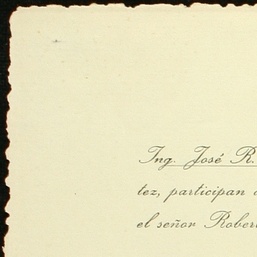 Ing. José R.
tez, participan
el señor Rober